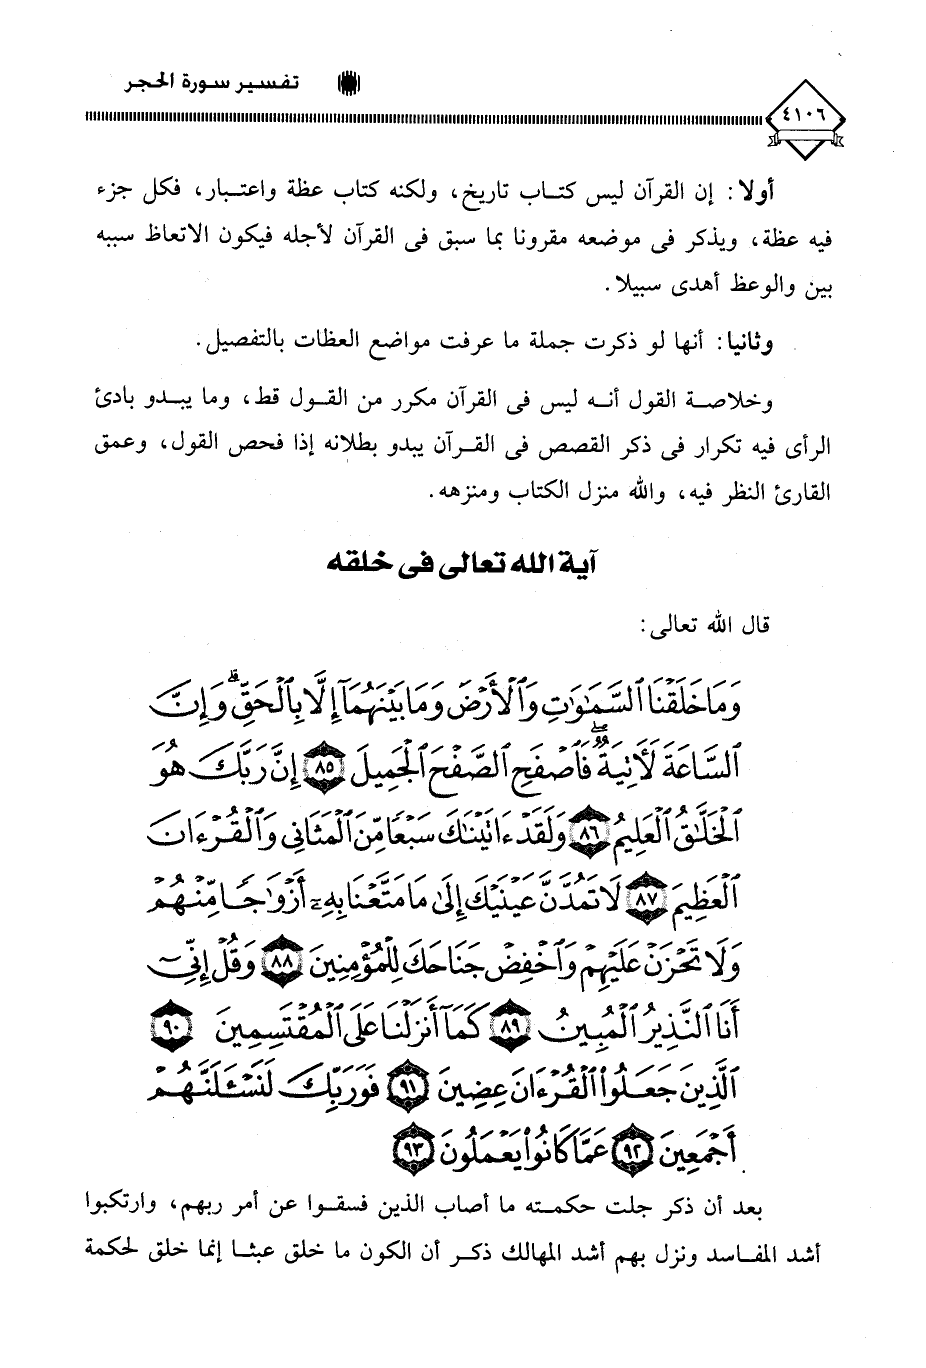 تفسير سورة الحجر
٤١٠٦
أولا: إن القرآن ليس كتاب تاريخ، ولكنه كتاب عظة واعتبار، فكل جزء
فيه عظة، ويذكر فى موضعه مقرونا بما سبق فى القرآن لأجله فيكون الاتعاظ سببه
بين والوعظ أهدى سبيلا.
وثانيا: أنها لو ذكرت جملة ما عرفت مواضع العظات بالتفصيل.
وخلاصة القول أنه ليس فى القرآن مكرر من القول قط، وما يبدو بادئ
الرأى فيه تكرار فى ذكر القصص فى القرآن يبدو بطلانه إذا فحص القول، وعمق
القارئ النظر فيه، والله منزل الكتاب ومنزهه.
آية الله تعالى فى خلقه
قال الله تعالى:
وَمَا خَلَقْنَا ٱلسَّمَٰوَٰتِ وَٱلْأَرْضَ وَمَا بَيْنَهُمَآ إِلَّا بِٱلْحَقِّ ۗ وَإِنَّ
ٱلسَّاعَةَ لَءَاتِيَةٌ ۖ فَٱصْفَحِ ٱلصَّفْحَ ٱلْجَمِيلَ ٨٥ إِنَّ رَبَّكَ هُوَ
ٱلْخَلَّٰقُ ٱلْعَلِيمُ ٨٦ وَلَقَدْ ءَاتَيْنَٰكَ سَبْعًا مِّنَ ٱلْمَثَانِى وَٱلْقُرْءَانَ
ٱلْعَظِيمَ ٨٧ لَا تَمُدَّنَّ عَيْنَيْكَ إِلَىٰ مَا مَتَّعْنَا بِهِۦٓ أَزْوَٰجًا مِّنْهُمْ
وَلَا تَحْزَنْ عَلَيْهِمْ وَٱخْفِضْ جَنَاحَكَ لِلْمُؤْمِنِينَ ٨٨ وَقُلْ إِنِّىٓ
أَنَا ٱلنَّذِيرُ ٱلْمُبِينُ ٨٩ كَمَآ أَنزَلْنَا عَلَى ٱلْمُقْتَسِمِينَ ٩٠
ٱلَّذِينَ جَعَلُوا۟ ٱلْقُرْءَانَ عِضِينَ ٩١ فَوَرَبِّكَ لَنَسْـَٔلَنَّهُمْ
أَجْمَعِينَ ٩٢ عَمَّا كَانُوا۟ يَعْمَلُونَ ٩٣
بعد أن ذكر جلت حكمته ما أصاب الذين فسقوا عن أمر ربهم، وارتكبوا
أشد المفاسد ونزل بهم أشد المهالك ذكر أن الكون ما خلق عبثا إنما خلق لحكمة